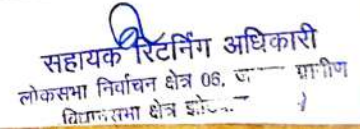 सहायक रिटर्निंग अधिकारी
लोकसभा निर्वाचन क्षेत्र 06, ग्रामीण
विधानसभा क्षेत्र